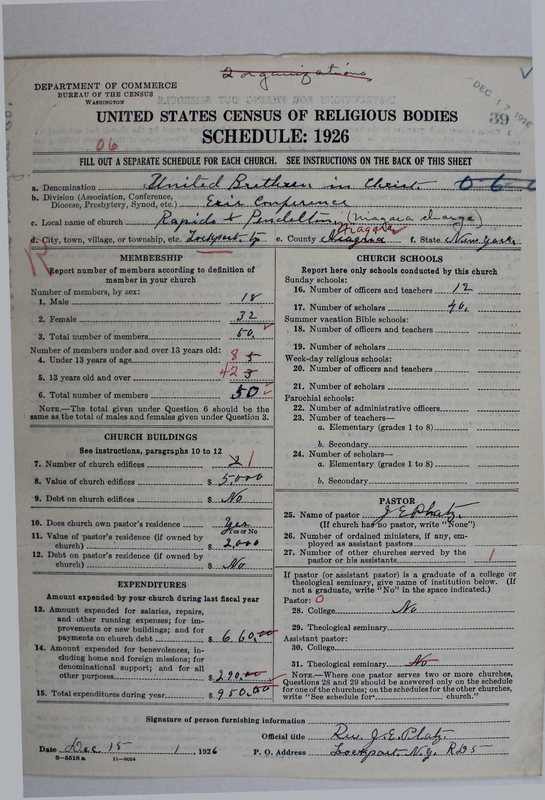 2 organizations
DEPARTMENT OF COMMERCE
BUREAU OF THE CENSUS
WASHINGTON
DEC 17 1926
39
UNITED STATES CENSUS OF RELIGIOUS BODIES
SCHEDULE: 1926
06
FILL OUT A SEPARATE SCHEDULE FOR EACH CHURCH. SEE INSTRUCTIONS ON THE BACK OF THIS SHEET
a. Denomination United Brethren in Christ 0-6-
b. Division (Association, Conference, Diocese, Presbytery, Synod, etc.) Erie Conference
c. Local name of church Rapids & Pendelton (Niagara charge)
d. City, town, village, or township, etc. Lockport, e. County Niagara Niagara f. State New York.
R
MEMBERSHIP
Report number of members according to definition of
member in your church
Number of members, by sex:
1. Male 18
2. Female 32
3. Total number of members 50.
Number of members under and over 13 years old:
4. Under 13 years of age 8 5
5. 13 years old and over 42 5
6. Total number of members 50
NOTE.—The total given under Question 6 should be the
same as the total of males and females given under Question 3.
CHURCH BUILDINGS
See instructions, paragraphs 10 to 12
7. Number of church edifices 2 1
8. Value of church edifices $ 5,000
9. Debt on church edifices $ No
10. Does church own pastor's residence Yes
Yes or No
11. Value of pastor's residence (if owned by
church) $ 2,000
12. Debt on pastor's residence (if owned by
church) $ No
EXPENDITURES
Amount expended by your church during last fiscal year
13. Amount expended for salaries, repairs,
and other running expenses; for im-
provements or new buildings; and for
payments on church debt $ 660.00
14. Amount expended for benevolences, in-
cluding home and foreign missions; for
denominational support; and for all
other purposes $ 290.00
15. Total expenditures during year $ 950.00
CHURCH SCHOOLS
Report here only schools conducted by this church
Sunday schools:
16. Number of officers and teachers 12
17. Number of scholars 40.
Summer vacation Bible schools:
18. Number of officers and teachers
19. Number of scholars
Week-day religious schools:
20. Number of officers and teachers
21. Number of scholars
Parochial schools:
22. Number of administrative officers
23. Number of teachers—
a. Elementary (grades 1 to 8)
b. Secondary
24. Number of scholars—
a. Elementary (grades 1 to 8)
b. Secondary
PASTOR
25. Name of pastor J. E. Platz.
(If church has no pastor, write "None")
26. Number of ordained ministers, if any, em-
ployed as assistant pastors
27. Number of other churches served by the
pastor or his assistants 1
If pastor (or assistant pastor) is a graduate of a college or
theological seminary, give name of institution below. (If
not a graduate, write "No" in the space indicated.)
Pastor: 0
28. College No
29. Theological seminary
Assistant pastor:
30. College
31. Theological seminary No
NOTE.—Where one pastor serves two or more churches,
Questions 28 and 29 should be answered only on the schedule
for one of the churches; on the schedules for the other churches,
write "See schedule for church."
Signature of person furnishing information
Official title Rev. J. E. Platz.
Date Dec 15 1, 1926 P. O. Address Lockport N.Y. RD5
8—5518a 11—9054